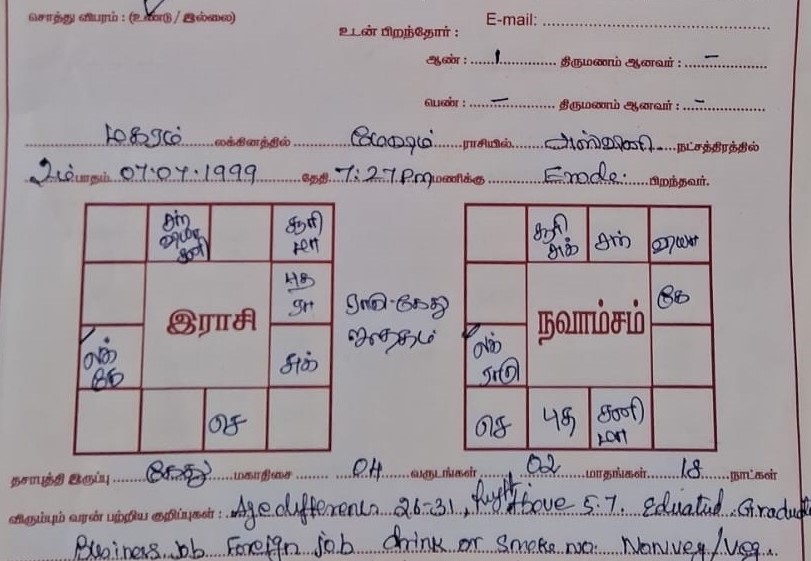 சொத்து விபரம் : (உண்டு / இல்லை)
E-mail:
உடன் பிறந்தோர் :
ஆண் : 1 திருமணம் ஆனவர் : –
பெண் : – திருமணம் ஆனவர் : –
மகரம் லக்கினத்தில் மேஷம் ராசியில் அஸ்வினி நட்சத்திரத்தில்
2ம் பாதம் 07.07.1999 தேதி 7:27 Pm மணிக்கு Erode. பிறந்தவர்.
சந்
வியா
சனி
சூரி
மா
புத
ரா
இராசி
லக்
கே
சுக்
செ
ராகு-கேது
ஜாதகம்
சூரி
சுக்
சந்
வியா
கே
நவாம்சம்
லக்
ராகு
செ
புத
சனி
மா
தசாபுத்தி இருப்பு கேது மகாதிசை 04 வருடங்கள் 02 மாதங்கள் 18 நாட்கள்
விரும்பும் வரன் பற்றிய குறிப்புகள் : Age difference 26-31, hight above 5.7. Eduated. Graduate
Business job Foreign job drink or smoke no. Nonveg/Veg.